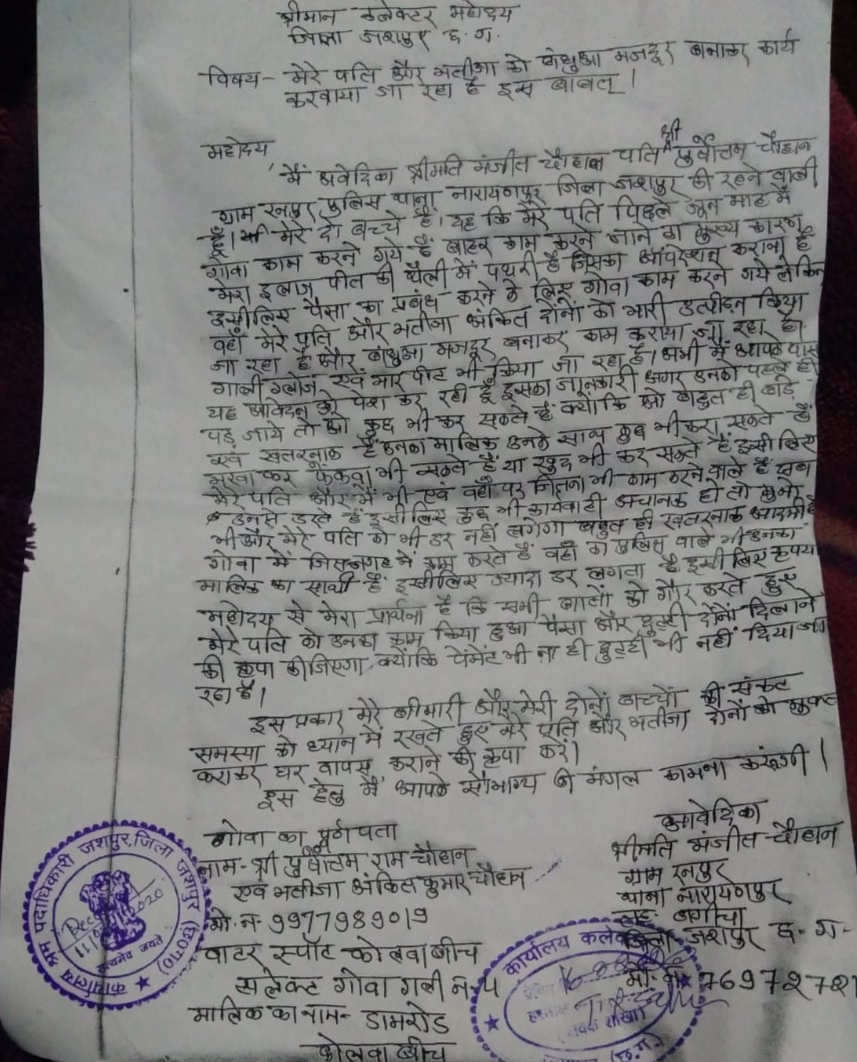 श्रीमान कलेक्टर महोदय
जिला जशपुर छ. ग.
विषय - मेरे पति और भतीजा को बंधुआ मजदूर बनाकर कार्य
करवाया जा रहा है इस बाबत् ।
महोदय,
मैं आवेदिका श्रीमति मंजीत चौहान पति श्री पुर्षोत्तम चौहान
ग्राम रनपुर, पुलिस थाना नारायणपुर जिला जशपुर की रहने वाली
हूँ। मेरे दो बच्चे हैं। यह कि मेरे पति पिछले जून माह में
गोवा काम करने गये हैं बाहर काम करने जाने का मुख्य कारण
मेरा इलाज पीत की थैली में पथरी है जिसका ऑपरेशन कराना है
इसीलिए पैसा का प्रबंध करने के लिए गोवा काम करने गये लेकिन
वहाँ मेरे पति और भतीजा अंकित दोनों को भारी उत्पीदन किया
जा रहा है और बंधुआ मजदूर बनाकर काम कराया जा रहा है।
गाली गलौज एवं मार पीट भी किया जा रहा है। अभी मैं आपके पास
यह आवेदन को पेश कर रही हूँ इसका जानकारी अगर उनको पहले ही
पड़ जाये तो वो कुछ भी कर सकते हैं क्योंकि वो बहुत ही
एवं खतरनाक हैं उनका मालिक उनके साथ कुछ भी करा सकते हैं
कर फेंकवा भी सकते हैं या खुद भी कर सकते हैं इसीलिए
मेरे पति और मैं भी एवं वहाँ पर जितना भी काम करने वाले हैं सब
उनसे डरते हैं इसीलिए कुछ भी कार्यवाही अचानक हो तो मुझे
भी और मेरे पति को भी डर नहीं लगेगा बहुत ही खतरनाक आदमी है
गोवा में जिस जगह में काम करते हैं वहाँ का पुलिस वाले भी उनका
मालिक का साथी हैं इसीलिए ज्यादा डर लगता है इसीलिए कृपया
महोदय से मेरा प्रार्थना है कि सभी बातों को गौर करते हुए
मेरे पति को उनका काम किया हुआ पैसा और छुट्टी दोनों दिलाने
की कृपा कीजिएगा, क्योंकि पेमेंट भी ना ही छुट्टी भी नहीं दिया जा
रहा है।
इस प्रकार मेरे बीमारी और मेरी दोनों बच्चों की संकट
समस्या को ध्यान में रखते हुए मेरे पति और भतीजा दोनों को मुक्त
कराकर घर वापस कराने की कृपा करें।
इस हेतु मैं आपके सौभाग्य की मंगल कामना करूंगी।
आवेदिका
श्रीमति मंजीत चौहान
ग्राम रनपुर
थाना नारायणपुर
तह- बगीचा
जिला जशपुर छ. ग.
मो. नं. 769727
गोवा का पूर्ण पता
नाम - श्री पुर्षोत्तम राम चौहान
एवं भतीजा अंकित कुमार चौहान
मो. न. 9977989019
वाटर स्पॉट कोलवा बीच
सलेक्ट गोवा गली न. 4
मालिक का नाम - डामरोड
कोलवा बीच
कार्यालय श्रम पदाधिकारी जशपुर, जिला जशपुर (छ०ग०)
सत्यमेव जयते
कार्यालय कले
(छ.ग.)